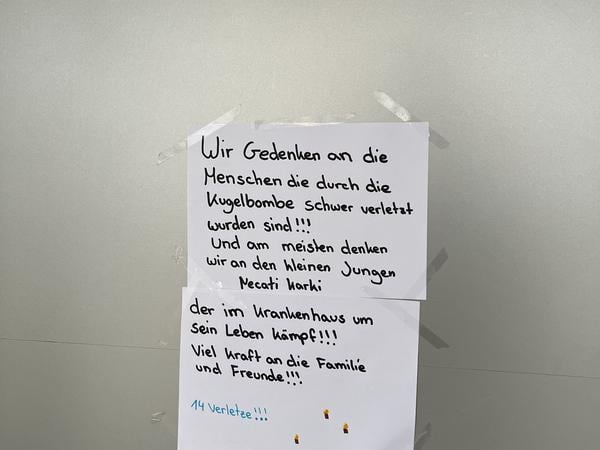 Wir Gedenken an die
Menschen die durch die
Kugelbombe schwer verletzt
wurden sind!!!
Und am meisten denken
wir an den kleinen Jungen
Mecati Karki
der im Krankenhaus um
sein Leben kämpf!!!
Viel Kraft an die Familie
und Freunde!!!
14 Verletze!!!